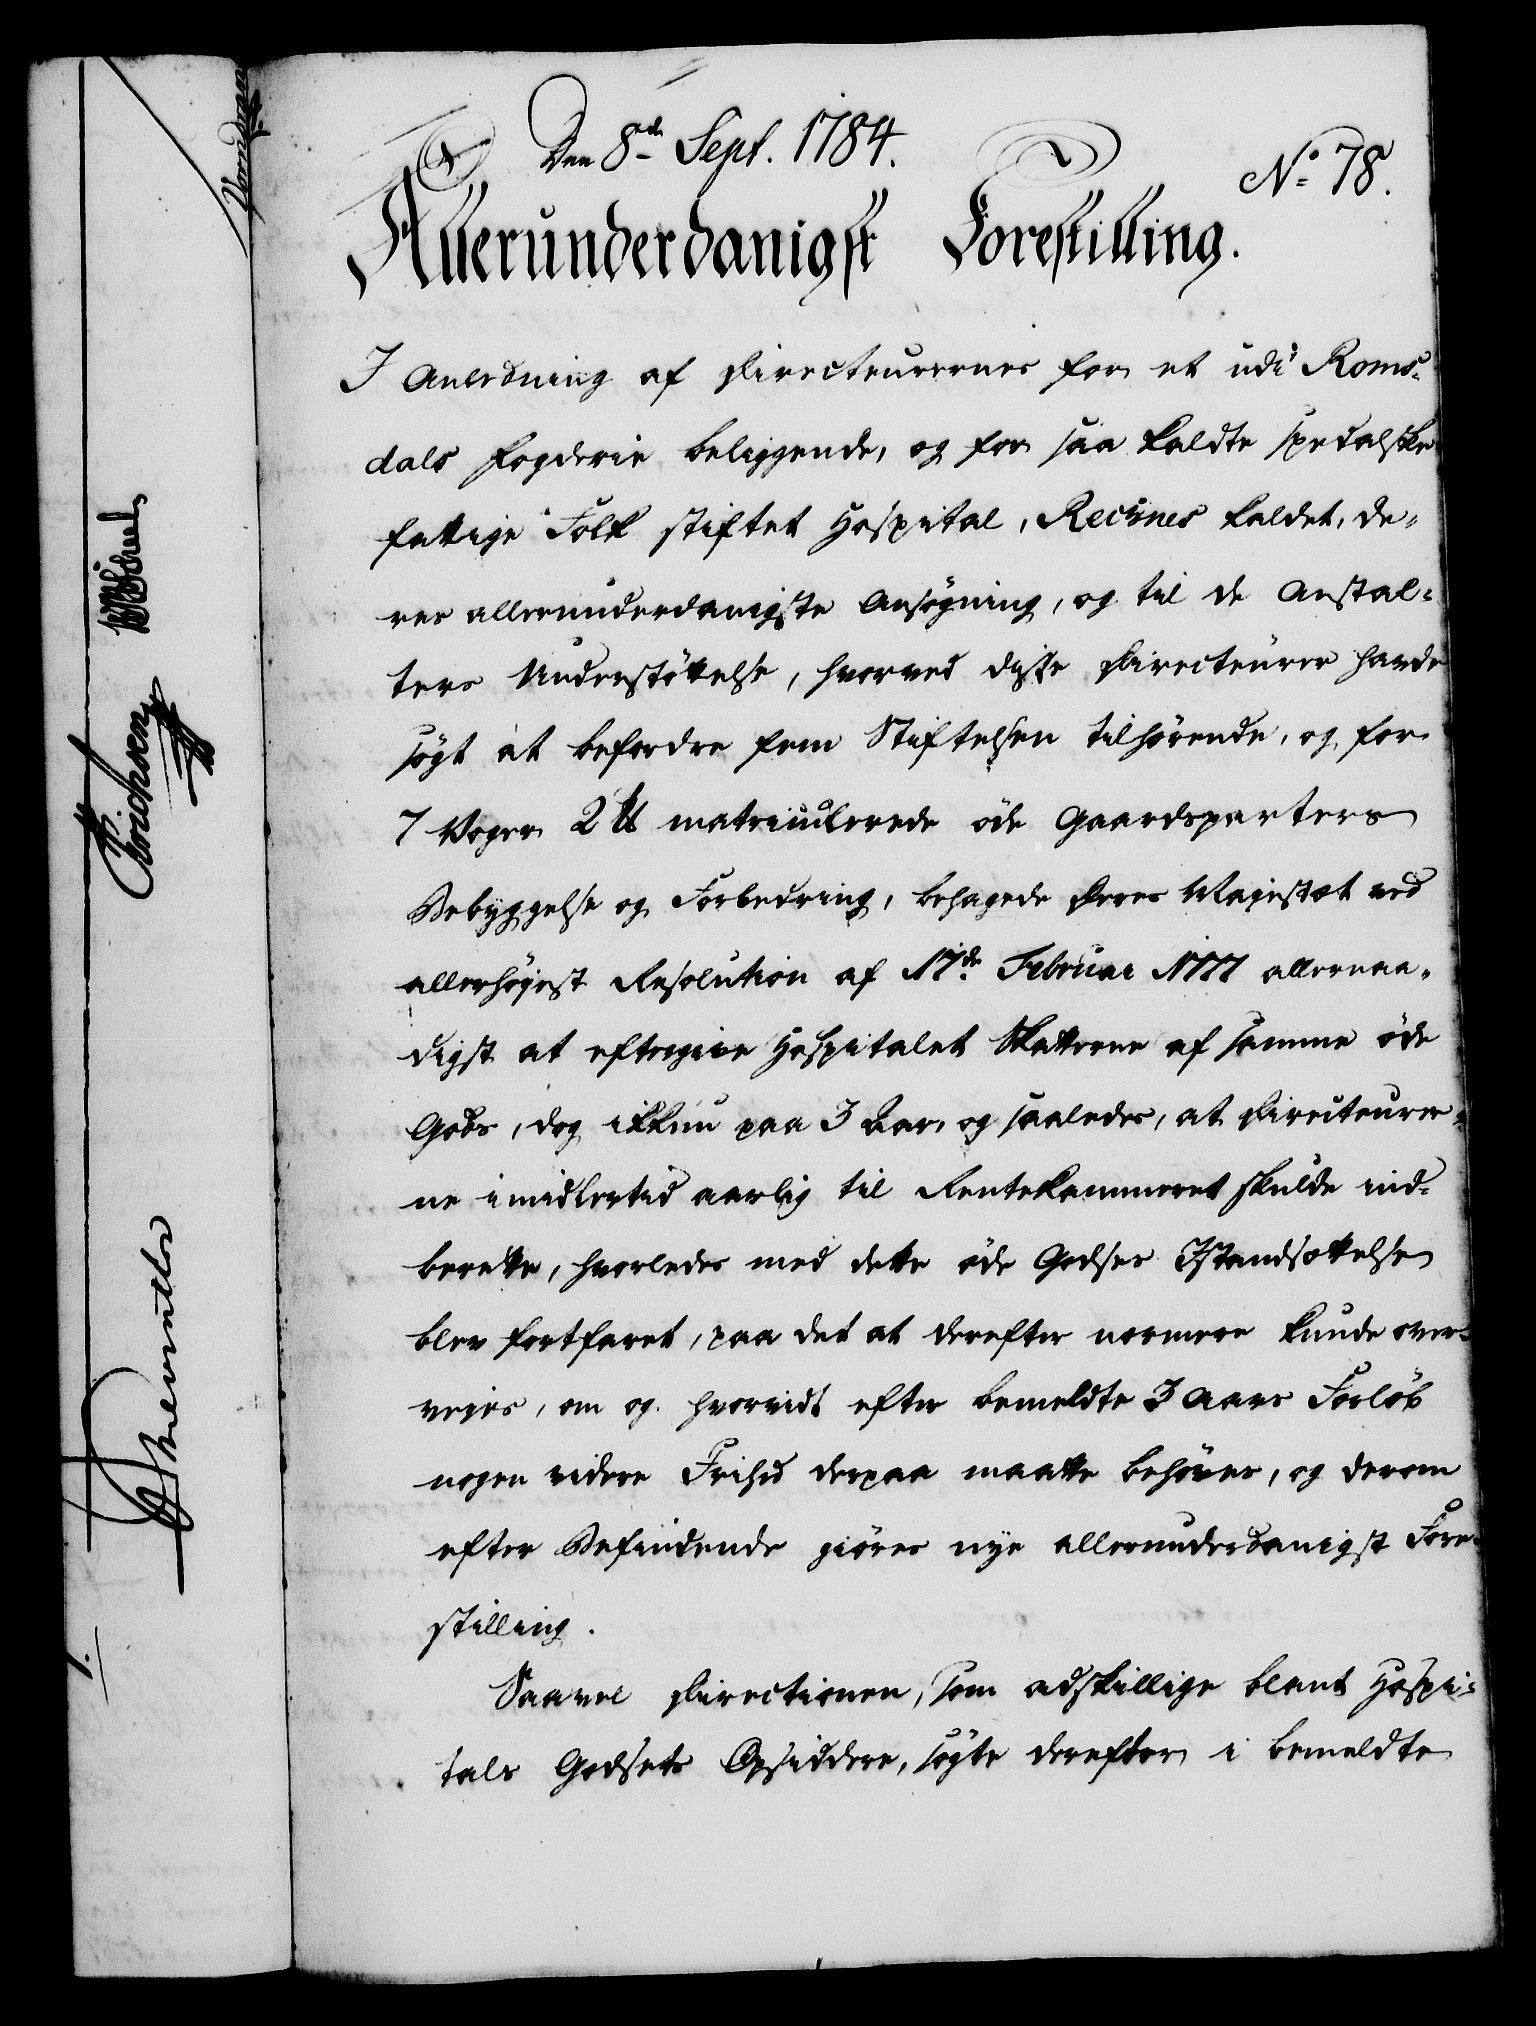 Den 8de Sept. 1784.
No 78.
Allerunderdanigst Forestilling.
I Anledning af Directeurernes for et udi Roms-
dals Fogderie beliggende, og for saa kaldte spedalske
fattige Folk stiftet Hospital, Recknes kaldet, de-
res allerunderdanigste Ansøgning, og til de Anstal-
ters Understøttelse, hvorved disse Directeurer havde
søgt at befordre fem Stiftelsen tilhørende, og for
7 Voger 2 ℔ matriculerede øde Gaardsparters
Bebyggelse og Forbedring, behagede Deres Majestæt ved
allerhøyest Resolution af 17de Februar 1777 allernaa-
digst at eftergive Hospitalet Skatterne af samme øde
Gods, dog ikkun paa 3 Aar, og saaledes, at Directeurer-
ne imidlertid aarlig til Rentekammeret skulde ind-
berette, hvorledes med dette øde Godses Istandsættelse
blev fortfaret, paa det at derefter nærmere kunde over-
vejes, om og hvorvidt efter bemeldte 3 Aars Forløb
nogen videre Frihed derpaa maatte behøves, og derom
efter Befindende giøres nye allerunderdanigst Fore-
stilling.
Saavel Directionen, som adskillige blant Hospi-
tals Godsets Opsiddere, søgte derefter i bemeldte